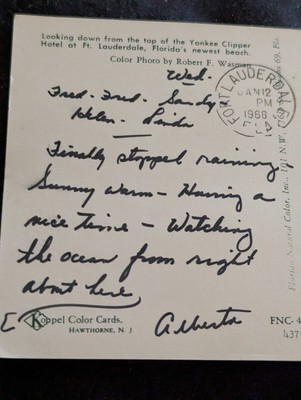 Looking down from the top of the Yankee Clipper
Hotel at Ft. Lauderdale, Florida's newest beach.
Color Photo by Robert F. Wasman
Wed.
Fred-Fred- Sandy
Helen- Linda
FORT LAUDERDALE
JAN 12
PM
1966
FLA
Finally stopped raining,
Sunny warm - Having a
nice time - Watching
the ocean from right
about here
Alberta
Koppel Color Cards.
HAWTHORNE, N. J.
FNC-4
437
Florida Natural Color, Inc., 101 N.W.